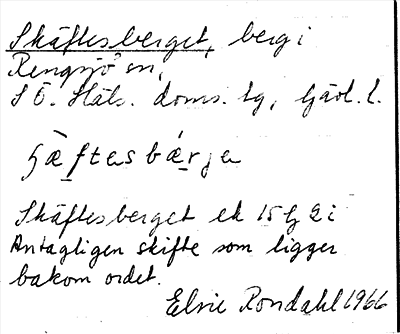 Skäftesberget, berg i
Rengsjö sn,
S Ö. Häls. doms. tg, Gävl. l.
ʃæftesbærje
Skäftesberget ek 15 G 2 i
Antagligen skifte som ligger
bakom ordet.
Elsie Rondahl 1966